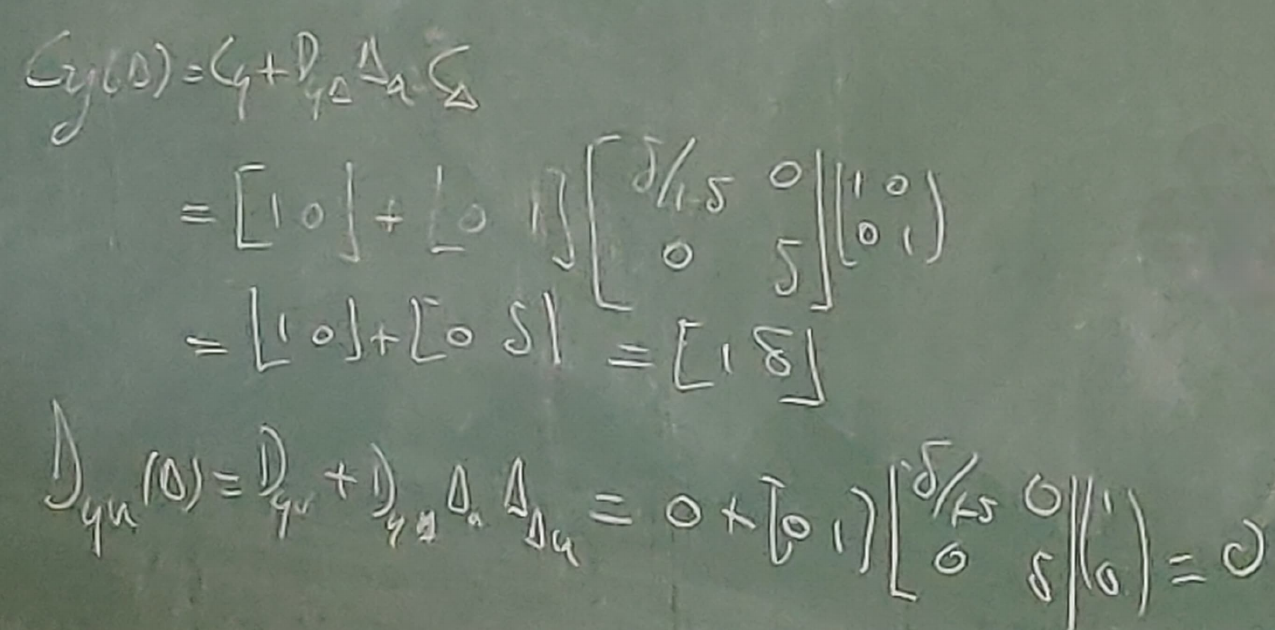 Cy(Δ) = Cy + DyΔ Δa CΔ
= [1 0] + [0 1] [δ/1-δ 0; 0 δ] [1 0; 0 1]
= [1 0] + [0 δ] = [1 δ]
Dyu(Δ) = Dyu + DyΔ Δa ΔΔu = 0 + [0 1] [δ/1-δ 0; 0 δ] [1; 0] = 0